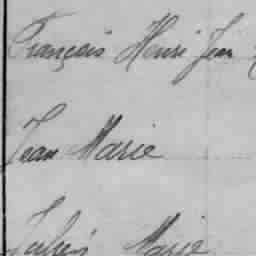 François Henri Jean
Jean Marie
Jules Marie